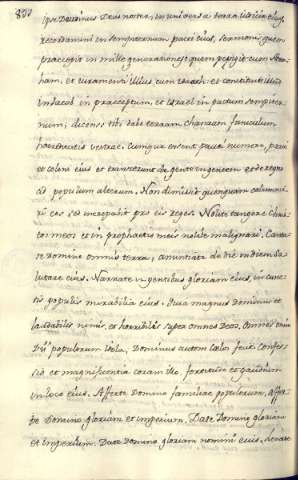 ipse Dominus Deus noster, in universa terra iuditia eius,
recordamini in sempiternum pacti eius, sermonis quem
præcepit in mille generationes quem pepigit cum Abra
ham, et iuramenti illius cum Isaach. et constituit illud
in Iacob in præceptum, et Israel in pactum sempiter
num; dicens tibi dabo terram Chanaan funiculum
hæreditatis vestræ. Cumque essent pauci numero, parvi
et coloni eius et transierunt de gente in gentem et de regno
ad populum alterum. Non dimisit quenquam calumnia
ri eos sed increpavit pro eis reges. Nolite tangere Chris
tos meos et in prophetis meis nolite malignari. Canta
te Domino omnis terra, anuntiate de die in diem sa
lutare eius. Narrate in gentibus gloriam eius, in cunc
tis populis mirabilia eius. Quia magnus Dominus et
laudabilis nimis, et horribilis super omnes Deos. Omnes enim
Dii populorum idola, Dominus autem cælos fecit. Confess
sio et magnificentia coram illo fortitudo et gaudium
in loco eius. Afferte Domino familiæ populorum, affer
te Domino gloriam et imperium. Date Domino gloriam
et imperium. Date Domino gloriam nomini eius, levate